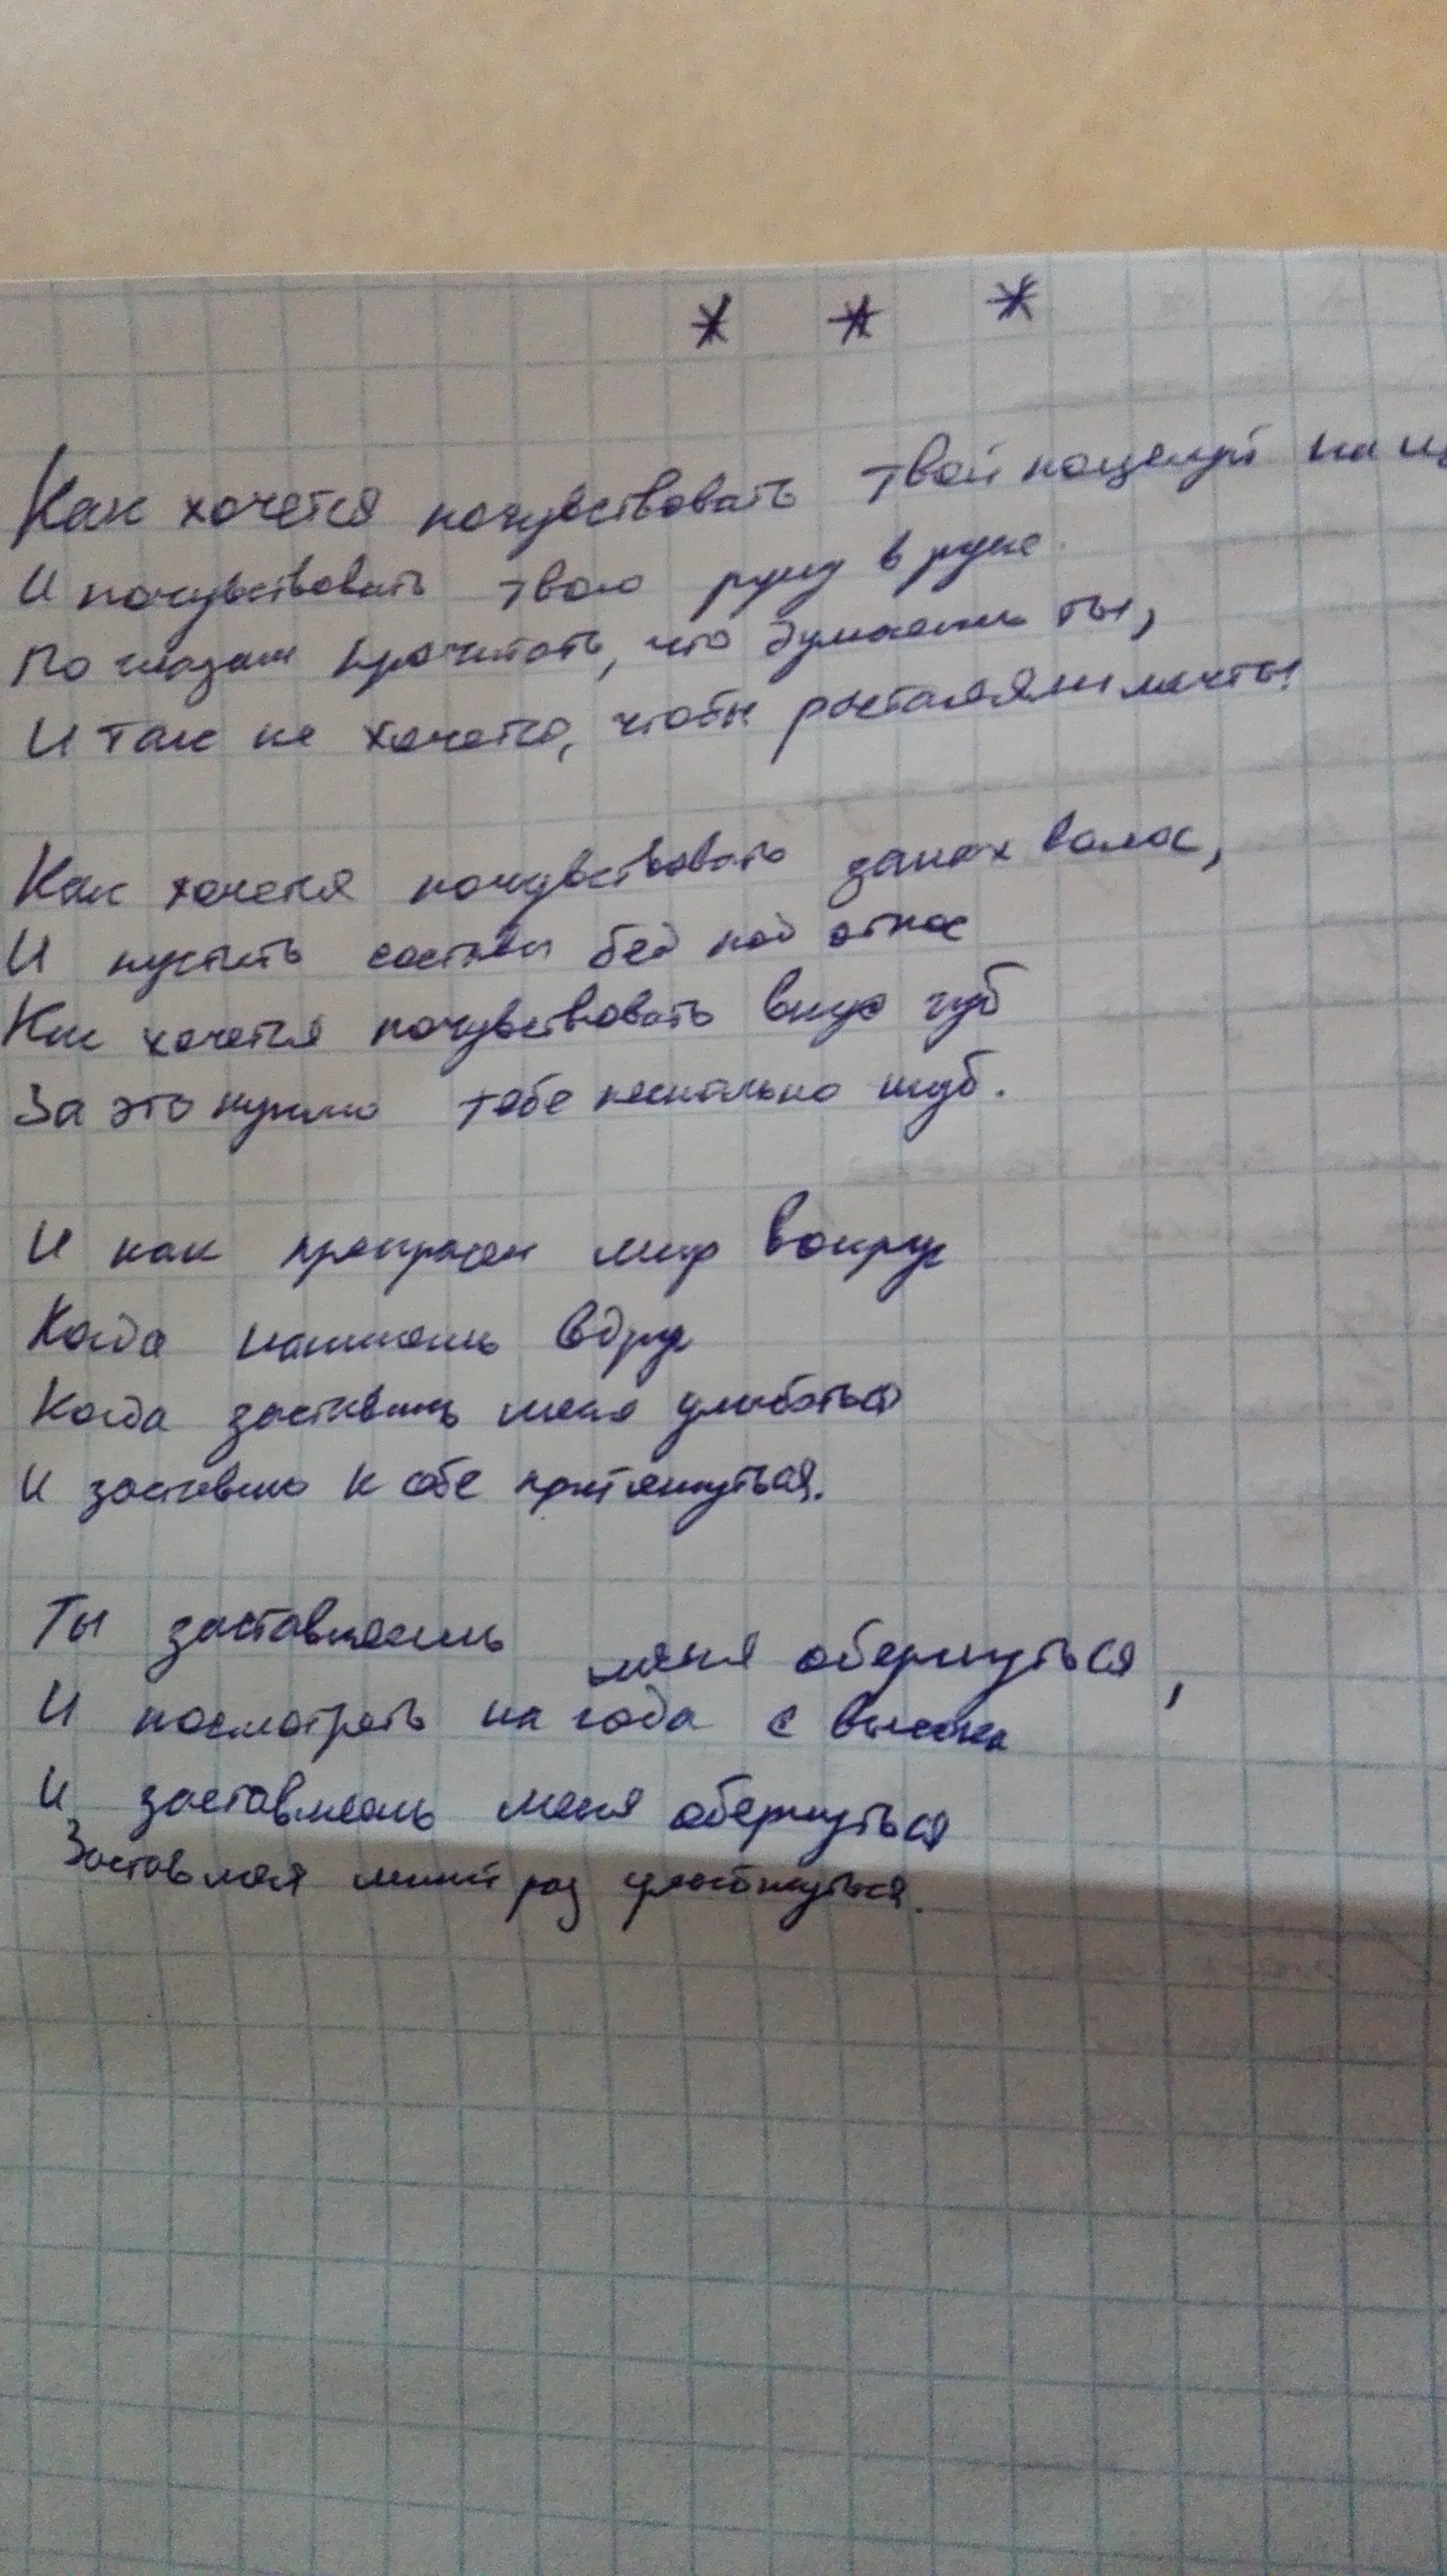 * * *
Как хочется почувствовать твой поцелуй на
И почувствовать твою руку в руке.
По глазам прочитать, что думаешь ты,
И так не хочется, чтобы растаяли мечты!
Как хочется почувствовать запах волос,
И пустить составы бед под откос
Как хочется почувствовать вкус губ
За это куплю тебе несколько шуб.
И как прекрасен мир вокруг
Когда напишешь вдруг
Когда заставишь меня улыбаться
И заставишь к себе притянуться.
Ты заставляешь меня обернуться,
И посмотреть на года с высока
И заставляешь меня обернуться
Заставляя лишний раз улыбнуться.